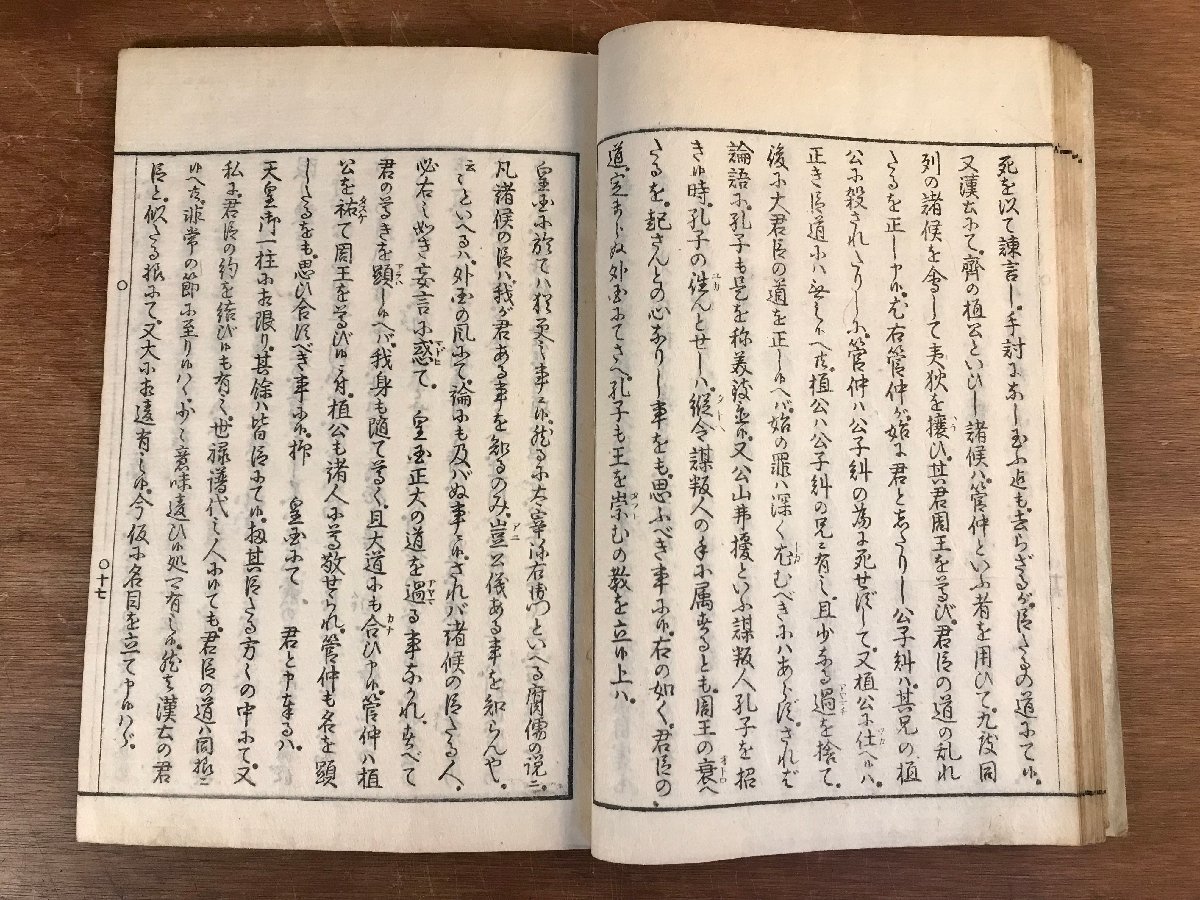 死を以て諫言し。手討にあふ玉ふ迄も。去らざるが。臣たるの道にて候。
又漢土にて。齊の桓公といひし諸侯ハ。管仲といふ者を用ひて。九役同
列の諸侯を會して夷狄を攘ひ。其君周王を尊び。君臣の道の乱れ
たるを正し申候。尤右管仲が。始に君とあたりし公子糾ハ。其兄の桓
公に殺されたりしに。管仲ハ公子糾の為に死せずして。又桓公に仕へ候ハ。
正き臣道にハ無之候へ共。桓公ハ公子糾の兄ニ有之。且少なる過を捨て。
後に大君臣の道を正し候へバ。始の罪ハ深く尤むべきにハあらず。されば
論語に。孔子も是を称美致候。又公山弗擾といふ謀叛人孔子を招
き候時。孔子の往んとせしハ。縦令謀叛人の手に属するとも。周王の衰へ
たるを。起さんとの心ありし事をも。思ふべき事に候。右の如く。君臣の
道。定まらぬ外国にてさへ。孔子も王を崇むの教を立候上ハ。
皇国に於てハ猶更之事ニ候。然るに太宰弥右衛門といへる腐儒の説ニ。
凡諸侯の臣ハ。我が君ある事を知るのみ。豈公儀ある事を知らんや。
云々といへるハ。外国の風にて。論にも及バぬ事ニ候。されバ諸侯の臣たる人。
必右之如き妄言に惑て。 皇国正大の道を過る事なかれ。すべて
君の尊きを顕し候へバ。我身も随て尊く。且大道にも合ひ申候。管仲ハ桓
公を祐て周王を尊び候ニ付。桓公も諸人に尊敬せられ。管仲も名を顕
したるをも。思ひ合すべき事に候。抑 皇国にて 君と申奉るハ。
天皇御一柱に古限り。其余ハ皆臣にて候。扨其臣たる方々の中にて。又
私に君臣の約を結び候も有之。世禄譜代之人にても。君臣の道ハ同様ニ
候へ共。非常の節に至り候ハヾ少々意味違ひ候処も有之候。然るを漢土の君
臣と。似たる様にて。又大に相違有之候。今仮に名目を立て申候ハヾ。
○
○十七